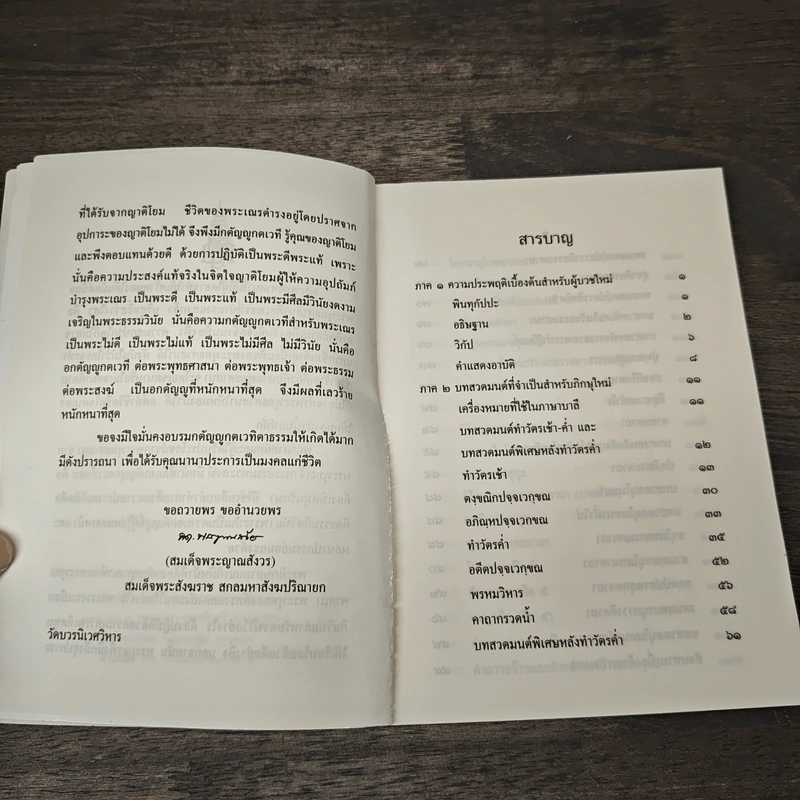 ที่ได้รับจากญาติโยม ชีวิตของพระเณรดำรงอยู่โดยปราศจาก
อุปการะของญาติโยมไม่ได้ จึงพึงมีกตัญญูกตเวที รู้คุณของญาติโยม
และพึงตอบแทนด้วยดี ด้วยการปฏิบัติเป็นพระดีพระแท้ เพราะ
นั่นคือความประสงค์แท้จริงในจิตใจญาติโยมผู้ให้ความอุปถัมภ์
บำรุงพระเณร เป็นพระดี เป็นพระแท้ เป็นพระมีศีลมีวินัยงดงาม
เจริญในพระธรรมวินัย นั่นคือความกตัญญูกตเวทีสำหรับพระเณร
เป็นพระไม่ดี เป็นพระไม่แท้ เป็นพระไม่มีศีล ไม่มีวินัย นั่นคือ
อกตัญญูกตเวที ต่อพระพุทธศาสนา ต่อพระพุทธเจ้า ต่อพระธรรม
ต่อพระสงฆ์ เป็นอกตัญญูที่หนักหนาที่สุด จึงมีผลที่เลวร้าย
หนักหนาที่สุด
ขอจงมีใจมั่นคงอบรมกตัญญูกตเวทิตาธรรมให้เกิดได้มาก
มีดังปรารถนา เพื่อได้รับคุณนานาประการเป็นมงคลแก่ชีวิต
ขอถวายพร ขออำนวยพร
(สมเด็จพระญาณสังวร)
สมเด็จพระสังฆราช สกลมหาสังฆปริณายก
วัดบวรนิเวศวิหาร
สารบาญ
ภาค ๑ ความประพฤติเบื้องต้นสำหรับผู้บวชใหม่ ๑
พินทุกัปปะ ๑
อธิษฐาน ๒
วิกัป ๖
คำแสดงอาบัติ ๘
ภาค ๒ บทสวดมนต์ที่จำเป็นสำหรับภิกษุใหม่ ๑๑
เครื่องหมายที่ใช้ในภาษาบาลี ๑๑
บทสวดมนต์ทำวัตรเช้า-ค่ำ และ
บทสวดมนต์พิเศษหลังทำวัตรค่ำ ๑๒
ทำวัตรเช้า ๑๓
ตงฺขณิกปจฺจเวกฺขณ ๓๐
อภิณฺหปจฺจเวกขณ ๓๓
ทำวัตรค่ำ ๓๕
อตีตปจฺจเวกฺขณ ๕๒
พรหมวิหาร ๕๖
คาถากรวดน้ำ ๕๘
บทสวดมนต์พิเศษหลังทำวัตรค่ำ ๖๑